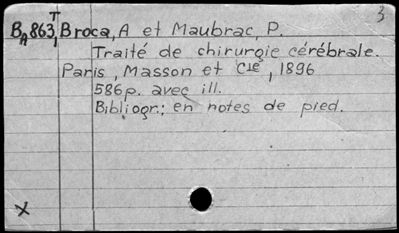 3
BA863T Broca, A et Maubrac, P.
Traité de chirurgie cérébrale.
Paris, Masson et Cie, 1896
586p. avec ill.
Bibliogr.: en notes de pied.
X